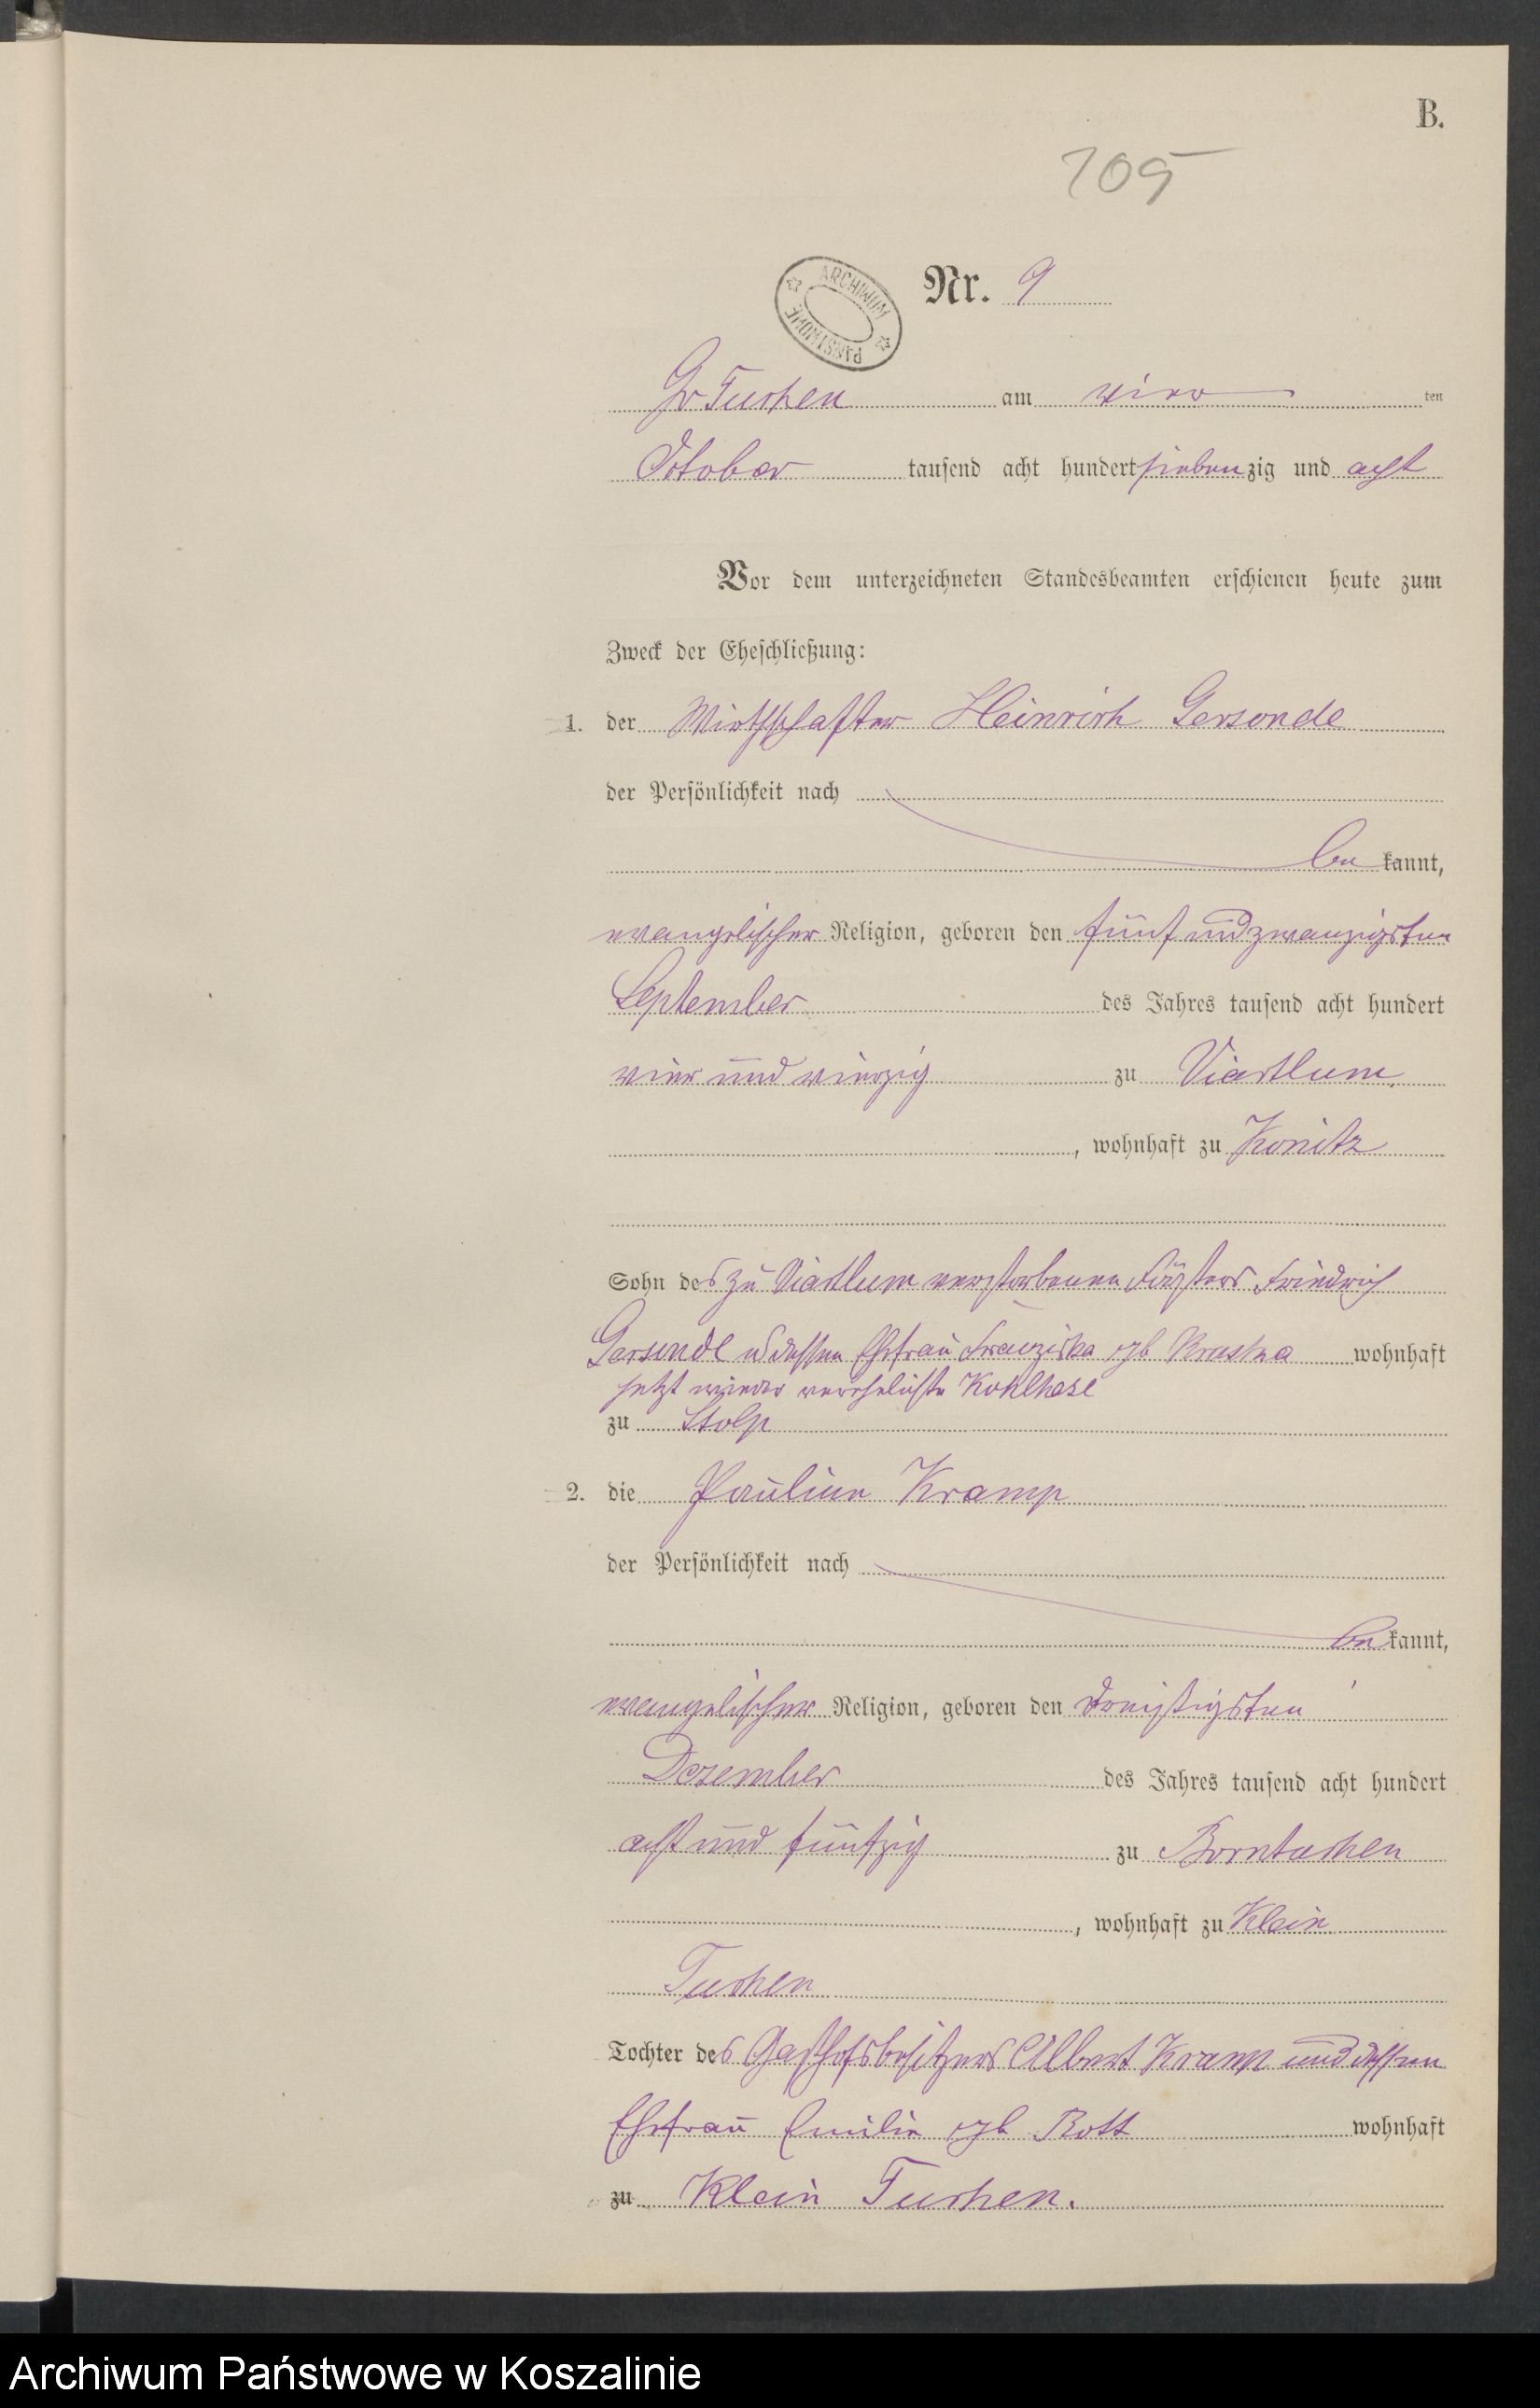 B.
105
ARCHIWUM PAŃSTWOWE
Nr. 9
Gr Tuchen am vier ten
October tausend acht hundert siebenzig und acht
Vor dem unterzeichneten Standesbeamten erschienen heute zum
Zweck der Eheschließung:
1. der Wirthschafter Heinrich Gersonde
der Persönlichkeit nach
be kannt,
evangelischer Religion, geboren den fünf und zwanzigsten
September des Jahres tausend acht hundert
vier und vierzig zu Viartlum
, wohnhaft zu Konitz
Sohn des zu Viartlum verstorbenen Försters Friedrich
Gersonde u dessen Ehefrau Franziska geb wohnhaft
jetzt wieder verehelichte Kohlhase
zu Stolp
2. die Pauline Kramp
der Persönlichkeit nach
be kannt,
evangelischer Religion, geboren den dreißigsten
Dezember des Jahres tausend acht hundert
acht und fünfzig zu Borntuchen
, wohnhaft zu Klein
Tuchen
Tochter des Gasthofsbesitzers Albert Kramp und dessen
Ehefrau Emilie geb Bott wohnhaft
zu Klein Tuchen.
Archiwum Państwowe w Koszalinie